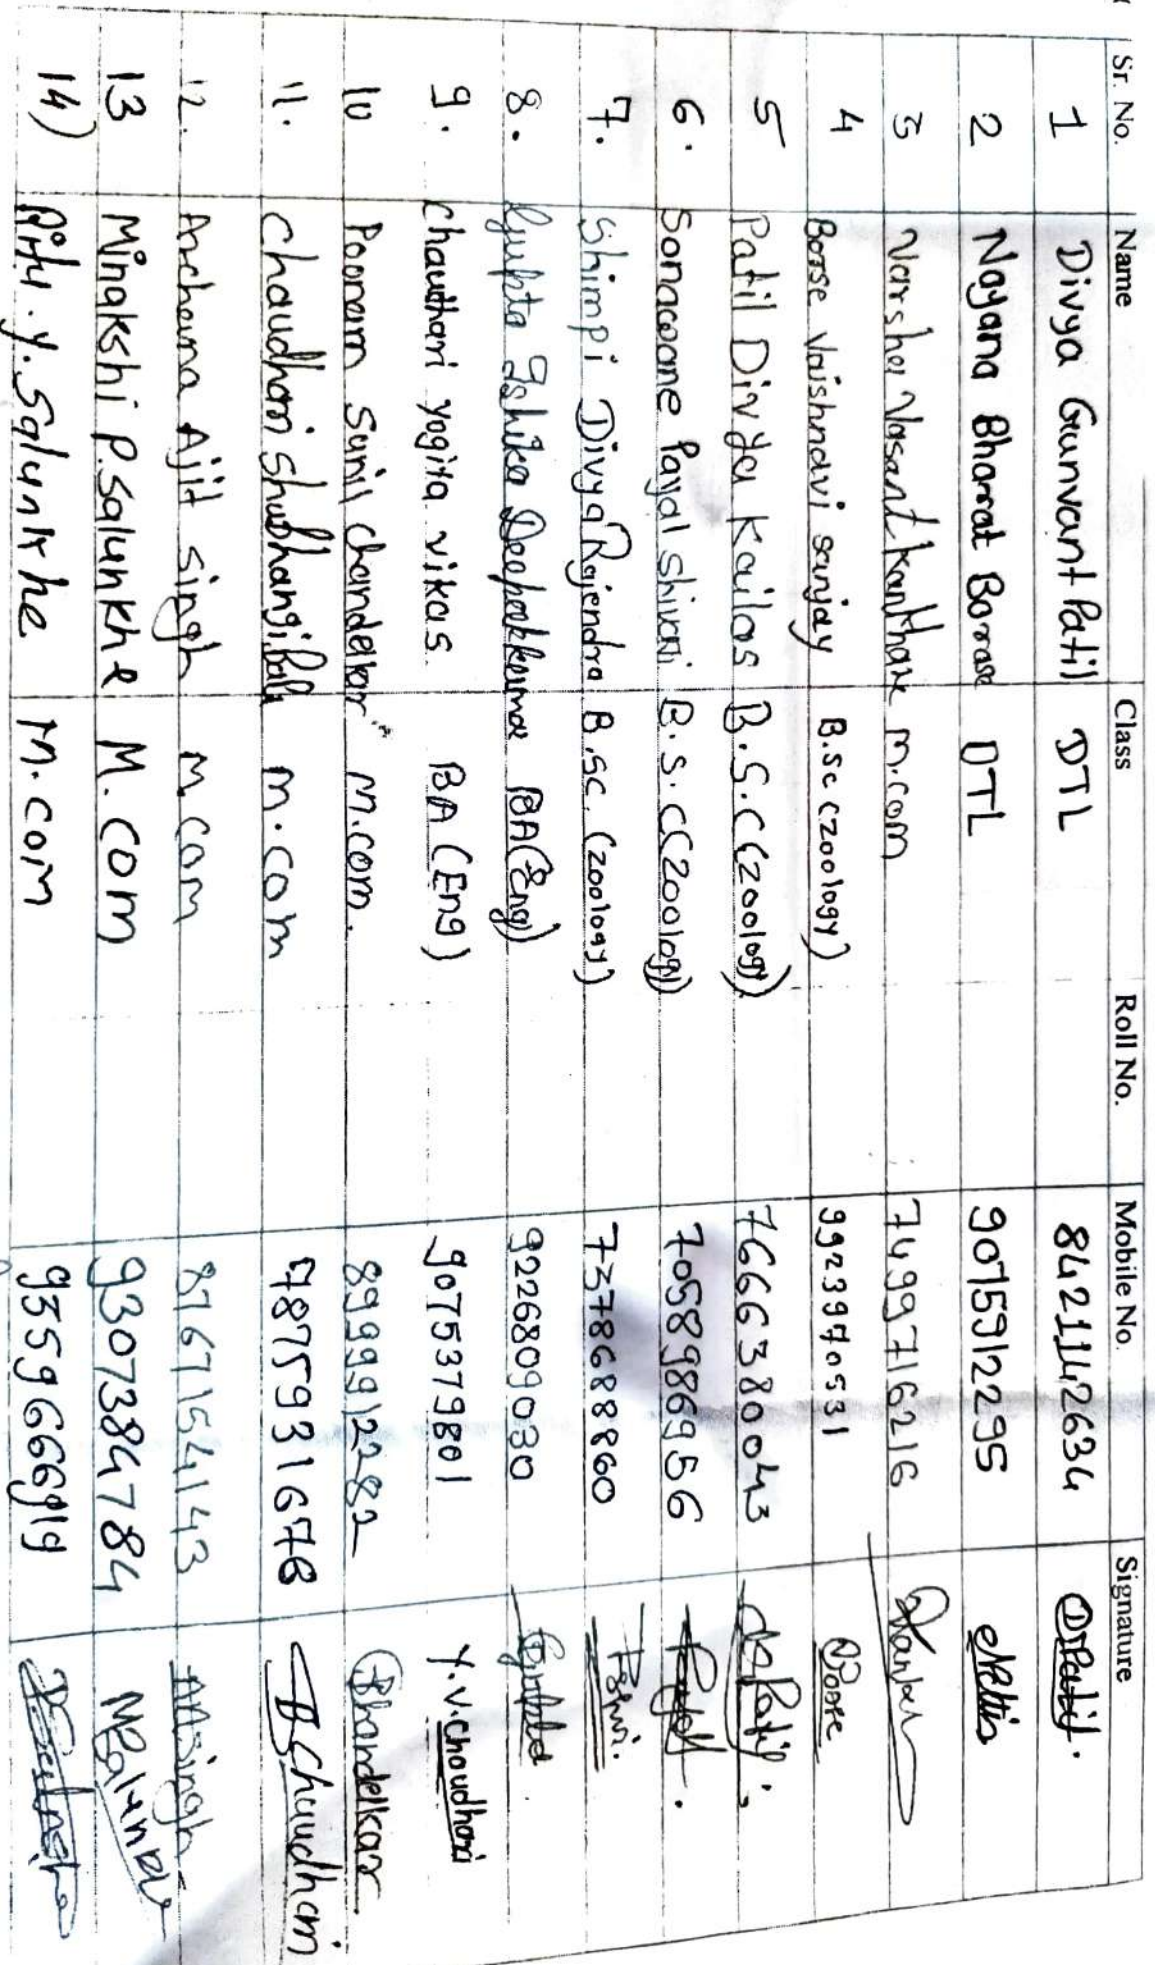 Sr. No. Name Class Roll No. Mobile No. Signature
1 Divya Gunvant Patil DTL 8421142634 DPatil.
2 Nayana Bharat Borase DTL 9075912295
3 Varsha Vasant Kanthare m.com 7499716216
4 Borse Vaishnavi sanjay B.sc (zoology) 9923970531
5 Patil Divya Kailas B.S.C (zoology) 7666380043
6. Sonawane Payal shivaji B.S.C (zoology) 7058986956
7. Shimpi Divya Rajendra B.sc. (zoology) 7378688860
8. Gupta Ishika Deepakkumar BA (Eng) 9226809030
9. Chaudhari yogita vikas. BA (Eng) 9075379801 Y.V.Choudhari
10 Poonam Sunil Chandelkar m.com. 8999912282
11. Chaudhari Shubhangi m.com 7875931678 Schaudhari
12. Archana Ajit singh m.com 8767154143 AAsingh
13 Minakshi P. Salunkhe M.COM 9307384784
14) y. Salunkhe M.com 9359666919